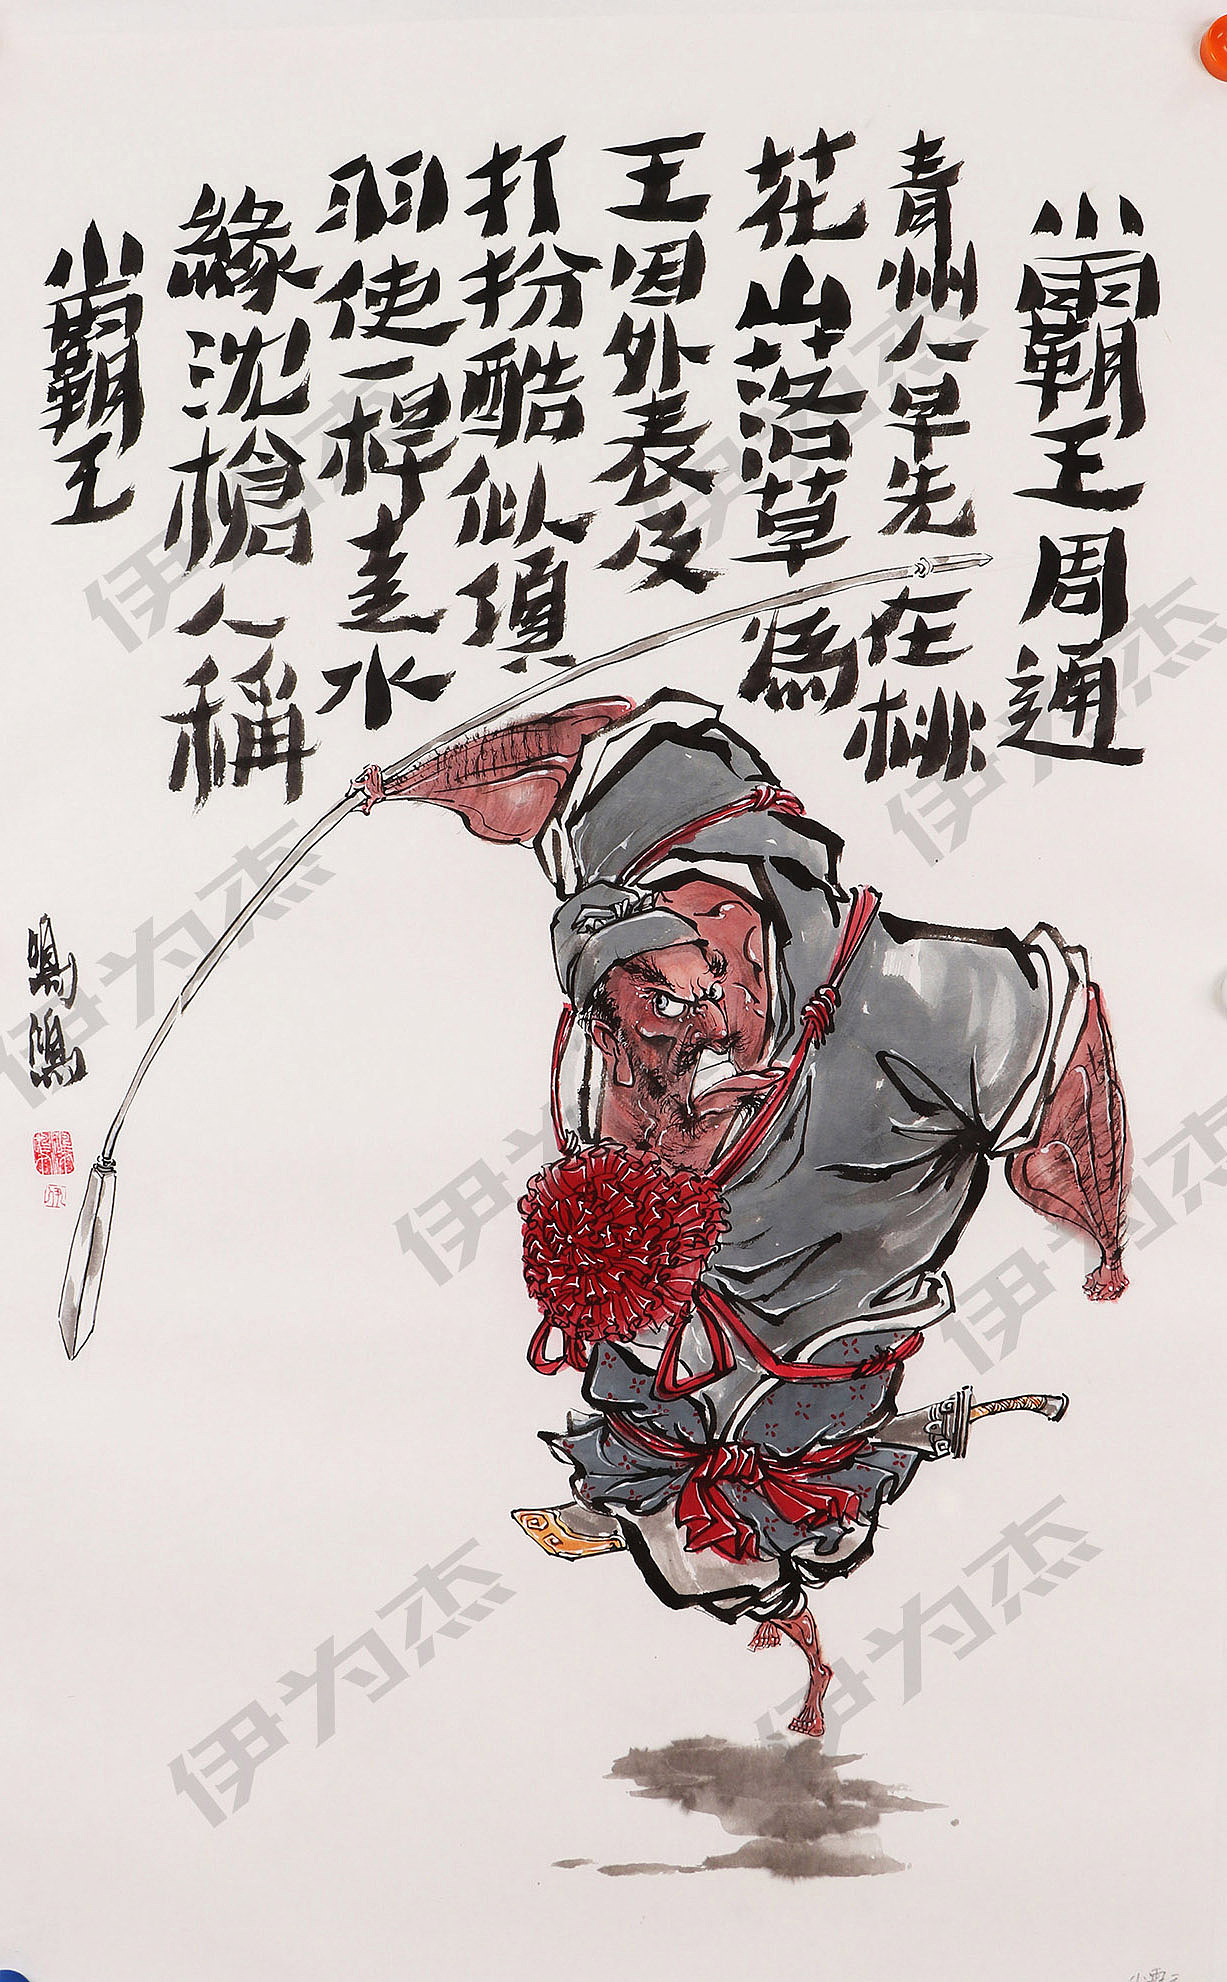 小霸王周通
青州人早先在桃
花山落草為
王因外表及
打扮酷似項
羽使一桿走水
緣沈槍人稱
小霸王
伊为杰
伊为杰
伊为杰
伊为杰
伊为杰
伊为杰
伊为杰
伊为杰